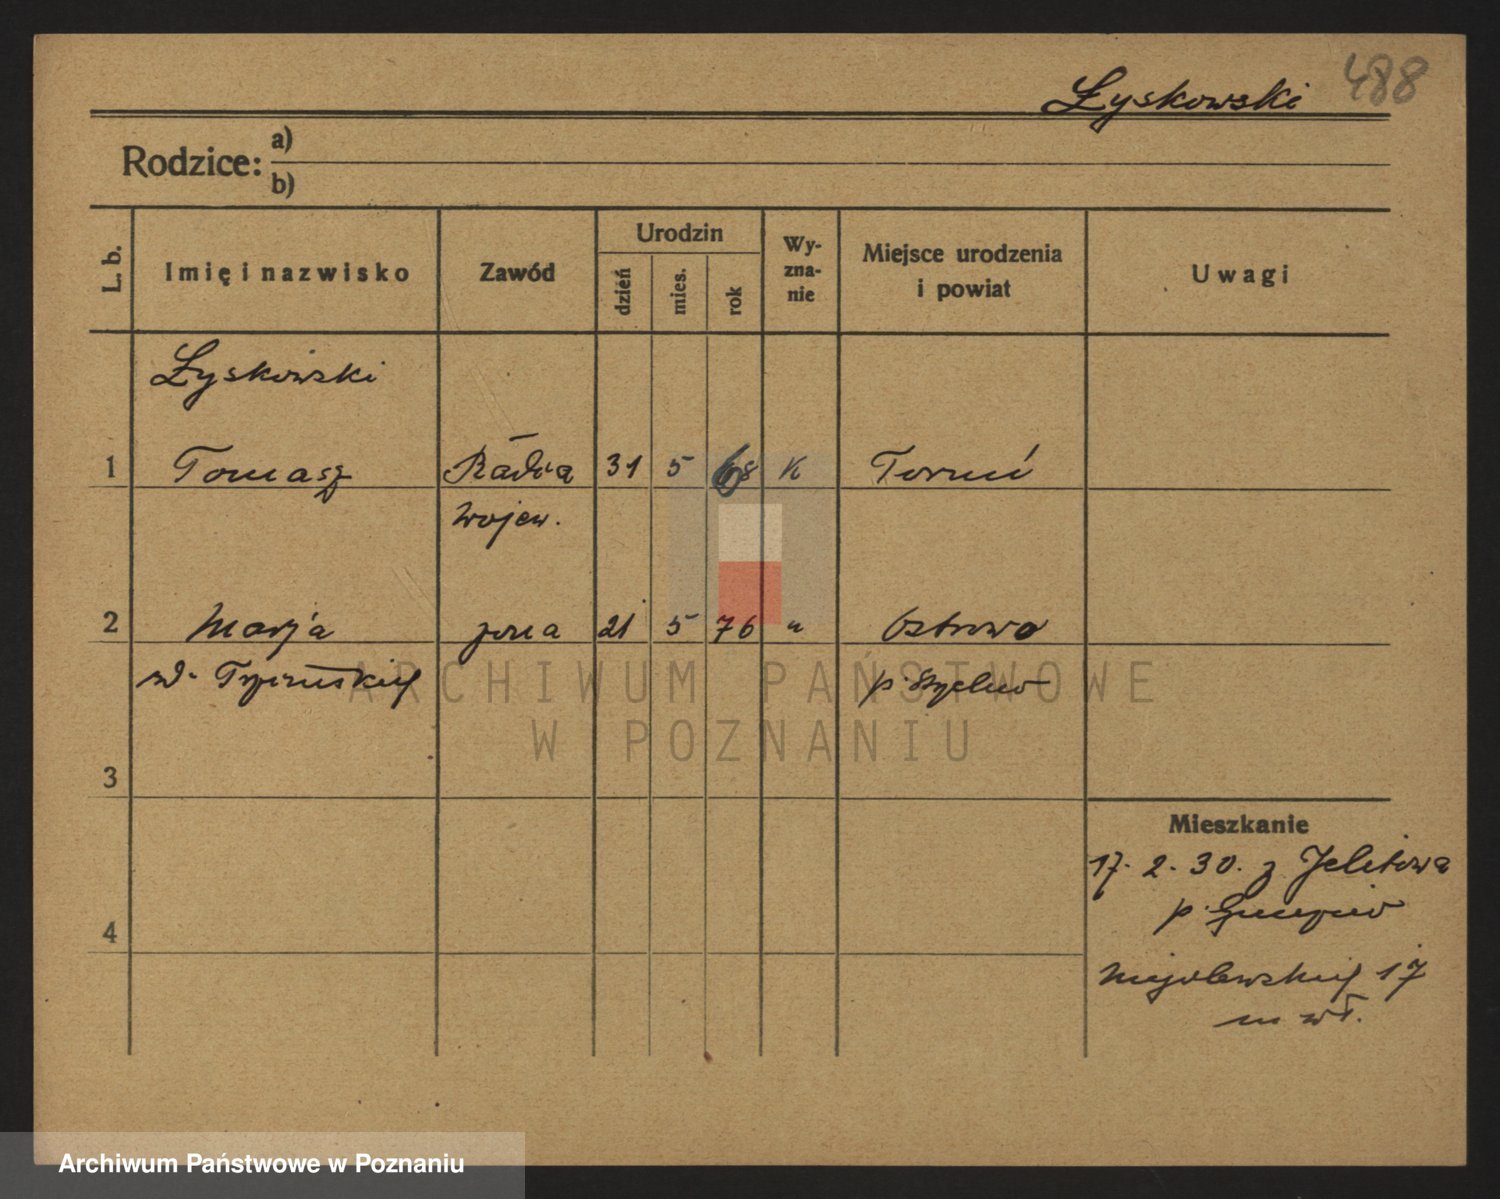 Łyskowski 488
Rodzice: a)
b)
L. b.
Imię i nazwisko
Zawód
Urodzin
dzień
mies.
rok
Wy-
zna-
nie
Miejsce urodzenia
i powiat
Uwagi
Łyskowski
1 Tomasz Radca 31 5 68 K Toruń
Wojew.
2 Marja żona 21 5 76 " Ostrowo
p.
3
Mieszkanie
17. 2. 30. z
p.
4
17
m wł.
ARCHIWUM PAŃSTWOWE
W POZNANIU
Archiwum Państwowe w Poznaniu